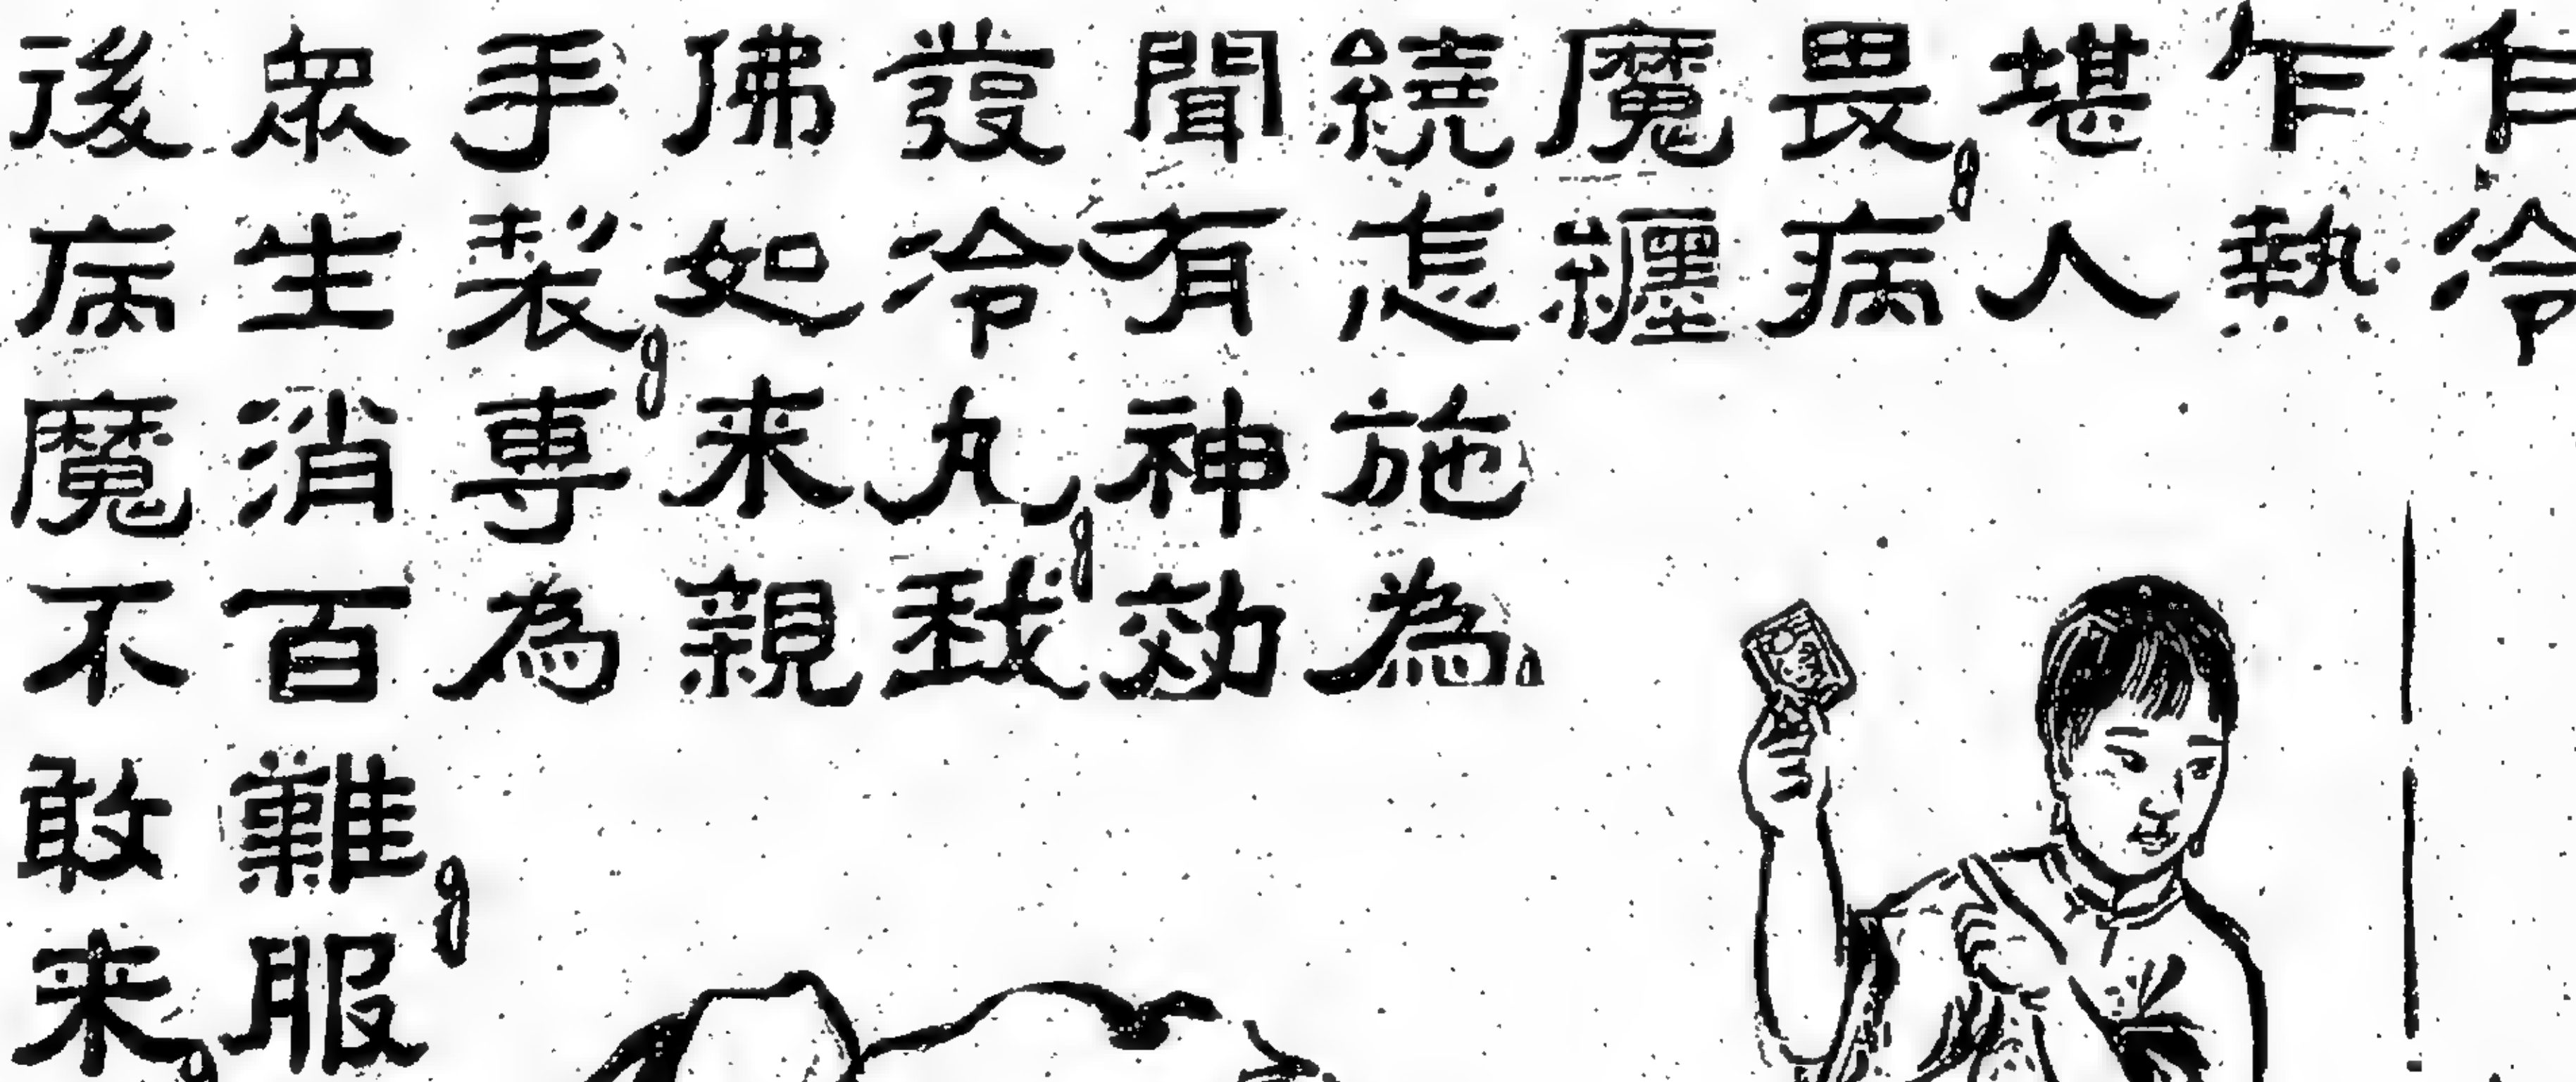 乍冷
乍熱
堪人
畏。病
魔纏
繞怎施為。
聞有神効
發冷丸。我
佛如来親
手製。專為
眾生消百難。服
後病魔不敢来。